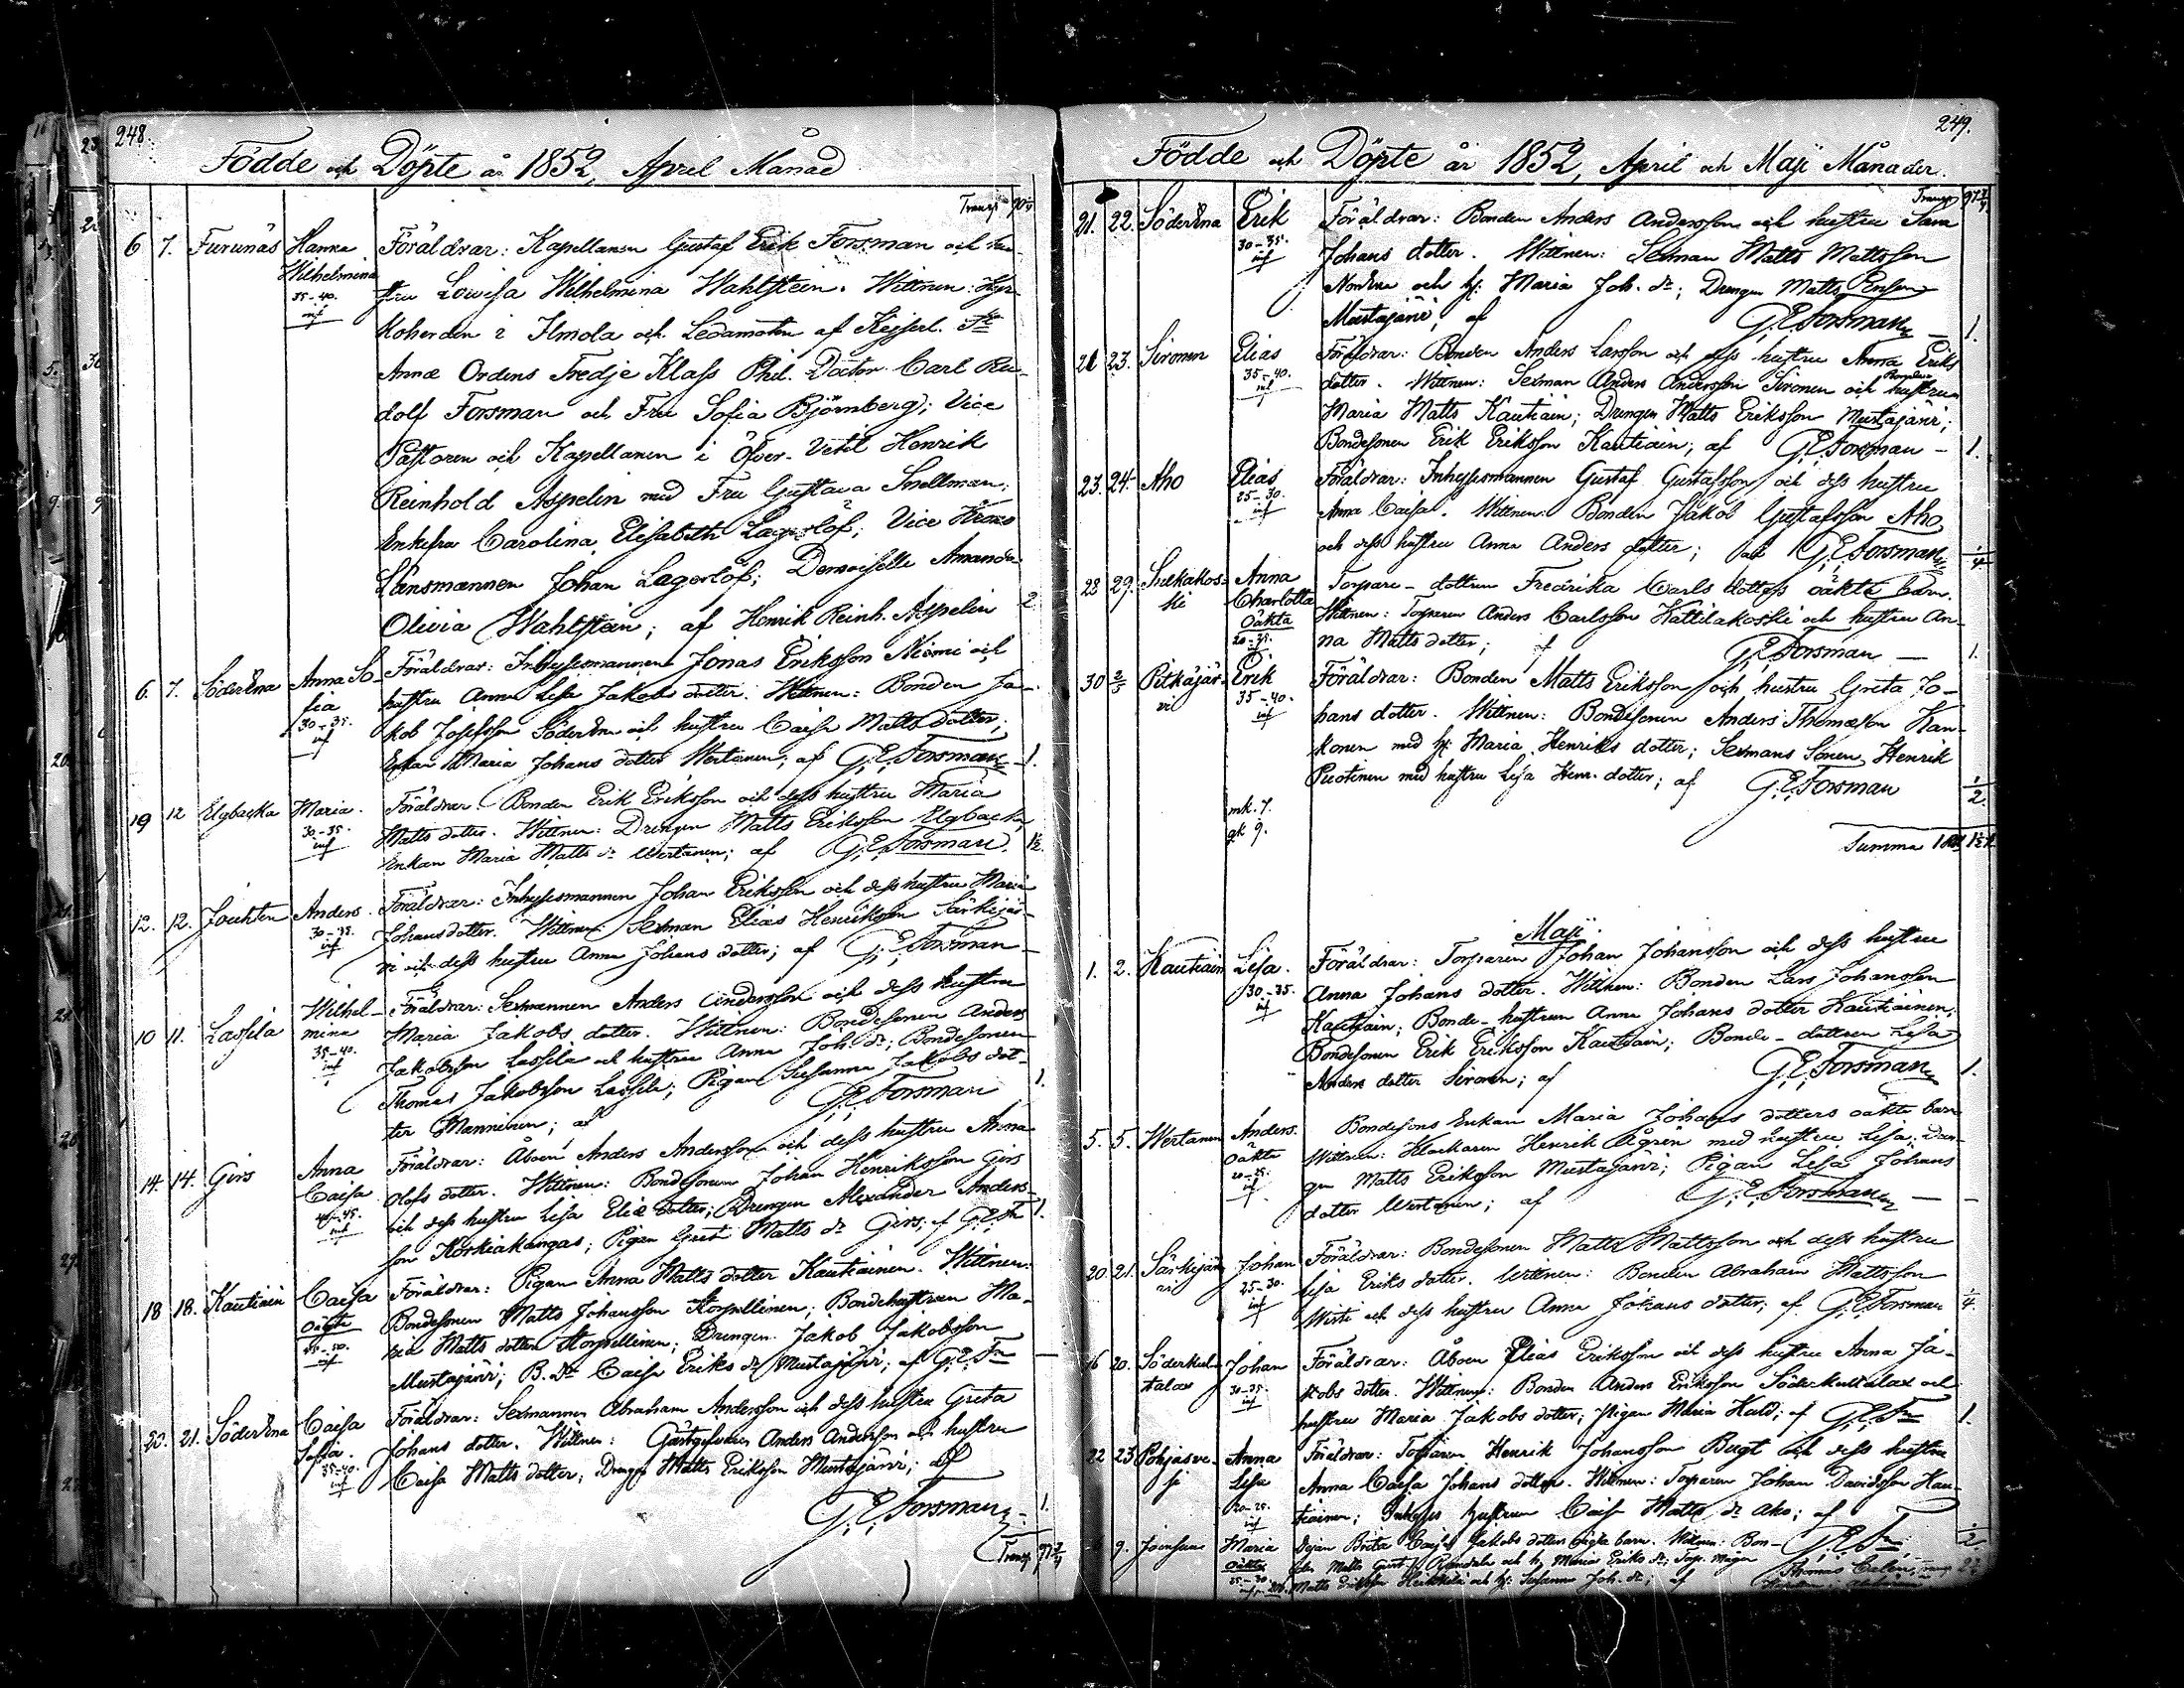 248.
Födde och Döpte år 1852, April Månad
Transp. 90 1/4
6 7. Furunäs Hanna Wilhelmina 35-40. inf Föräldrar: Kapellanen Gustaf Erik Forsman och hu-
stru Lovisa Wilhelmina Wahlstein. Wittnen: Kyr-
koherden i Ilmola och Ledamoten af Kejserl. Ste
Annæ Ordens Tredje Klass Phil. Doctor Carl Ru-
dolf Forsman och Fru Sofia Björnberg; Vice
Pastoren och Kapellanen i Öfver-Vetil Henrik
Reinhold Aspelin med Fru Gustava Snellman;
Enkefru Carolina Elisabeth Lagerlöf; Vice Krono
Länsmannen Johan Lagerlöf; Demoiselle Amanda
Olivia Wahlstein; af Henrik Reinh. Aspelin 2
6. 7. Söderena Anna So-fia 30-35. inf Föräldrar: Inhysesmannen Jonas Eriksson Niemi och
hustru Anna Lisa Jakobs dotter. Wittnen: Bonden Ja-
kob Josefsson Söderena och hustru Caisa Matts dotter;
Enkan Maria Johans dotter Wertanen; af G.E. Forsman 1.
19 12 Elgbacka Maria. 30-35. inf Föräldrar Bonden Erik Eriksson och dess hustru Maria
Matts dotter. Wittnen: Drengen Matts Eriksson Elgbacka,
Enkan Maria Matts dr Wertanen; af G.E. Forsman. 1 1/2.
12. 12. Jouhten Anders. 30-35. inf Föräldrar: Inhysesmannen Johan Eriksson och dess hustru Maria
Johans dotter. Wittnen: Sexman Elias Henriksson Särkijär-
vi och dess hustru Anna Johans dotter; af G.E. Forsman -
10 11. Lassila Wilhel-mina 35-40. inf Föräldrar: Sexmannen Anders Andersson och dess hustru
Maria Jakobs dotter. Wittnen: Bondesonen Anders
Jakobsson Lassila och hustru Anna Joh. dr; Bondesonen
Thomas Jakobsson Lassila; Pigan Susanna Jakobs dot-
ter Manninen; af G.E. Forsman 1.
14. 14. Girs Anna Caisa 40-45. inf Föräldrar: Åboen Anders Andersson och dess hustru Anna
Olofs dotter. Wittnen: Bondesonen Johan Henriksson Girs
och dess hustru Lisa Eliæ dotter; Drengen Alexander Anders-
son Koskiakangas; Pigan Greta Matts dr Girs; af G.E. Fn 1.
18 18. Kautiain Caisa Oäkta inf Föräldrar: Pigan Anna Matts dotter Kautiainen. Wittnen:
Bondesonen Matts Johansson Korpellinen; Bondehustrun Ma-
ria Matts dotter Korpellinen; Drengen Jakob Jakobsson
Mustajärvi; B. dr Caisa Eriks dr Mustajärvi; af G.E. Fn -
20. 21. Söderena Caisa Sofia. 35-40. inf Föräldrar: Sexmannen Abraham Andersson och dess hustru Greta
Johans dotter. Wittnen: Gästgifvaren Anders Andersson och hustru
Caisa Matts dotter; Drengen Matts Eriksson Mustajärvi; af
G.E. Forsman 1.
Transp. 97 3/4
249.
Födde och Döpte år 1852, April och Maji Månader.
Transp. 97 3/4
21. 22. Söderena Erik 30-35. inf Föräldrar: Bonden Anders Andersson och hustru Sara
Johans dotter. Wittnen: Sexman Matts Mattsson
och h: Maria Joh. dr; Drengen Matts
Mustajärvi; af G.E. Forsman 1.
21 23. Sironen Elias 35-40. inf Föräldrar: Bonden Anders Larsson och dess hustru Anna Eriks
dotter. Wittnen: Sexman Anders Andersson Sironen och hustrun
Maria Matts Kautiain; Drengen Matts Eriksson Mustajärvi;
Bondesonen Erik Eriksson Kautiain; af G.E. Forsman - 1.
23. 24. Aho Elias 25-30. inf Föräldrar: Inhysesmannen Gustaf Gustafsson och dess hustru
Anna Caisa. Wittnen: Bonden Jakob Gustafsson Aho
och dess hustru Anna Anders dotter; af G.E. Forsman 1/4
28 29. Anna Charlotta Oäkta inf Torpare-dottren Fredrika Carls dotters oäkta barn.
Wittnen: Torparen Anders Carlsson Kattilakoski och hustru An-
na Matts dotter; af G.E. Forsman - 1.
30 2/5 Pitkäjär-vi Erik 35-40. inf Föräldrar: Bonden Matts Eriksson och hustru Greta Jo-
hans dotter. Wittnen: Bondesonen Anders Thomasson Kan-
konen med h: Maria Henriks dotter; Sexmans Sonen Henrik
Puotinen med hustru Lisa Henr. dotter; af G.E. Forsman 1/2.
mk. 7.
qk 9.
Summa
Maji.
1. 2. Kautiain Lisa. 30-35. inf Föräldrar: Torparen Johan Johansson och dess hustru
Anna Johans dotter. Wittnen: Bonden Lars Johansson
Kautiain; Bonde-hustrun Anna Johans dotter Kautiainen;
Bondesonen Erik Eriksson Kautiain; Bonde-dottren Lisa
Anders dotter Sironen; af G.E. Forsman 1.
5. 5. Wertanen Anders. Oäkta inf Bondesons Enkan Maria Johans dotters oäkta barn
Wittnen: Klockaren Henrik Ågren med hustru Lisa; Dren-
gen Matts Eriksson Mustajärvi; Pigan Lisa Johans
dotter Wertanen; af G.E. Forsman -
20. 21. Särkijär-vi Johan 25-30. inf Föräldrar: Bondesonen Matts Mattsson och dess hustru
Lisa Eriks dotter. Wittnen: Bonden Abraham Mattsson
Wirti och dess hustru Anna Johans dotter; af G.E. Forsman 1/4.
16 20. Söderkul-talax Johan 30-35. inf Föräldrar: Åboen Elias Eriksson och dess hustru Anna Ja-
kobs dotter. Wittnen: Bonden Anders Eriksson Söderkultalax och
hustru Maria Jakobs dotter; Pigan Maria Hald; af G.E. Fn 1.
22 23 Pohjasve-si Anna Lisa 20-25. inf Föräldrar: Torparen Henrik Johansson Bugt och dess hustru
Anna Caisa Johans dotter. Wittnen: Torparen Johan Davidsson Kau-
tiainen; Inhyses hustrun Caisa Matts dr Aho; af G.E. Fn 1/2
9. Maria Oäkta 25-30. Pigan Brita Caisa Jakobs dotters oäkta barn. Wittnen: Bon-
den Matts och h: Maria Eriks dr; Torp.
Matts Eriksson och h: Susanna Joh. dr; af Thomas